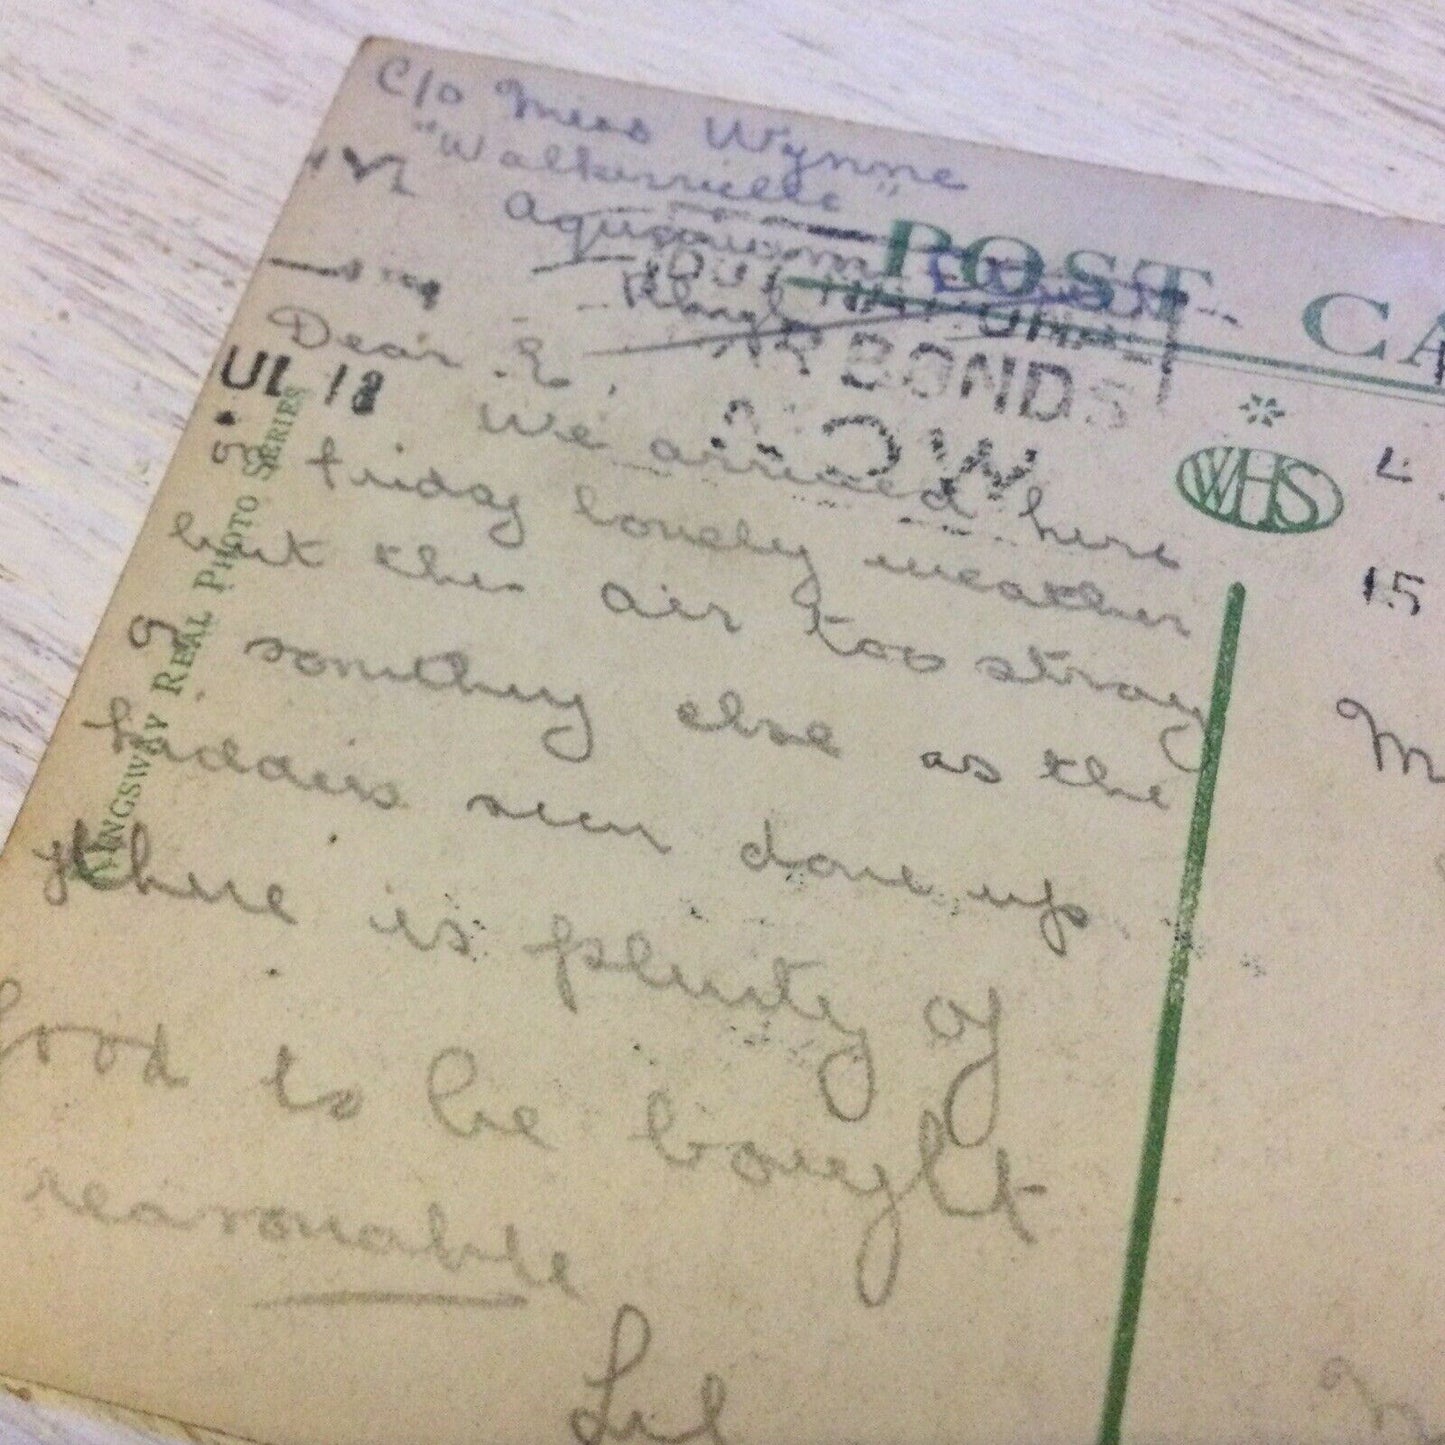 C/o Miss Wynne
"Walkerville"
Aquarium Street
Rhyl
POST CA
BONDS
NOW
UL 18
WHS
15
KINGSWAY REAL PHOTO SERIES
Dear E.
We arrived here
& friday lovely weather
but the air too strong
& something else as the
kiddies seem done up
there is plenty of
food to be bought
reasonable
Lil
M